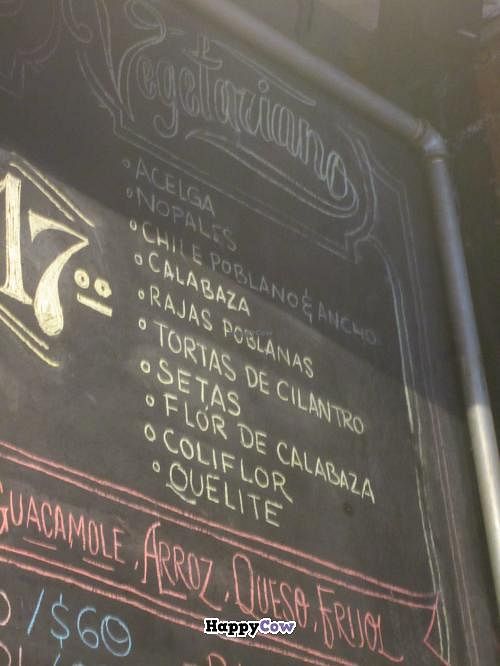 Vegetariano
17.00
ACELGA
NOPALES
CHILE POBLANO & ANCHO
CALABAZA
RAJAS POBLANAS
TORTAS DE CILANTRO
SETAS
FLOR DE CALABAZA
COLIFLOR
QUELITE
GUACAMOLE, ARROZ, QUESO, FRIJOL
/$60
HappyCow